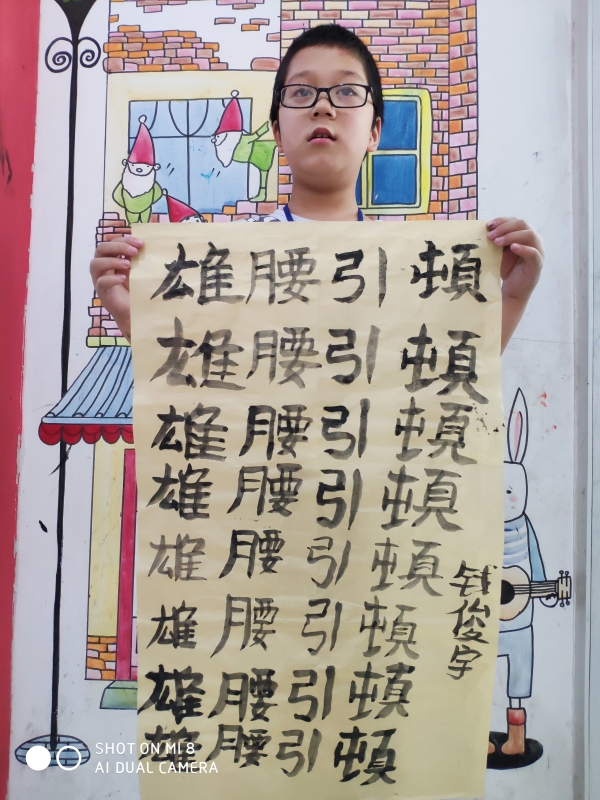 雄腰引頓
雄腰引頓
雄腰引頓
雄腰引頓
雄腰引頓
雄腰引頓
雄腰引頓
雄腰引頓
钱俊宇
SHOT ON MI 8
AI DUAL CAMERA